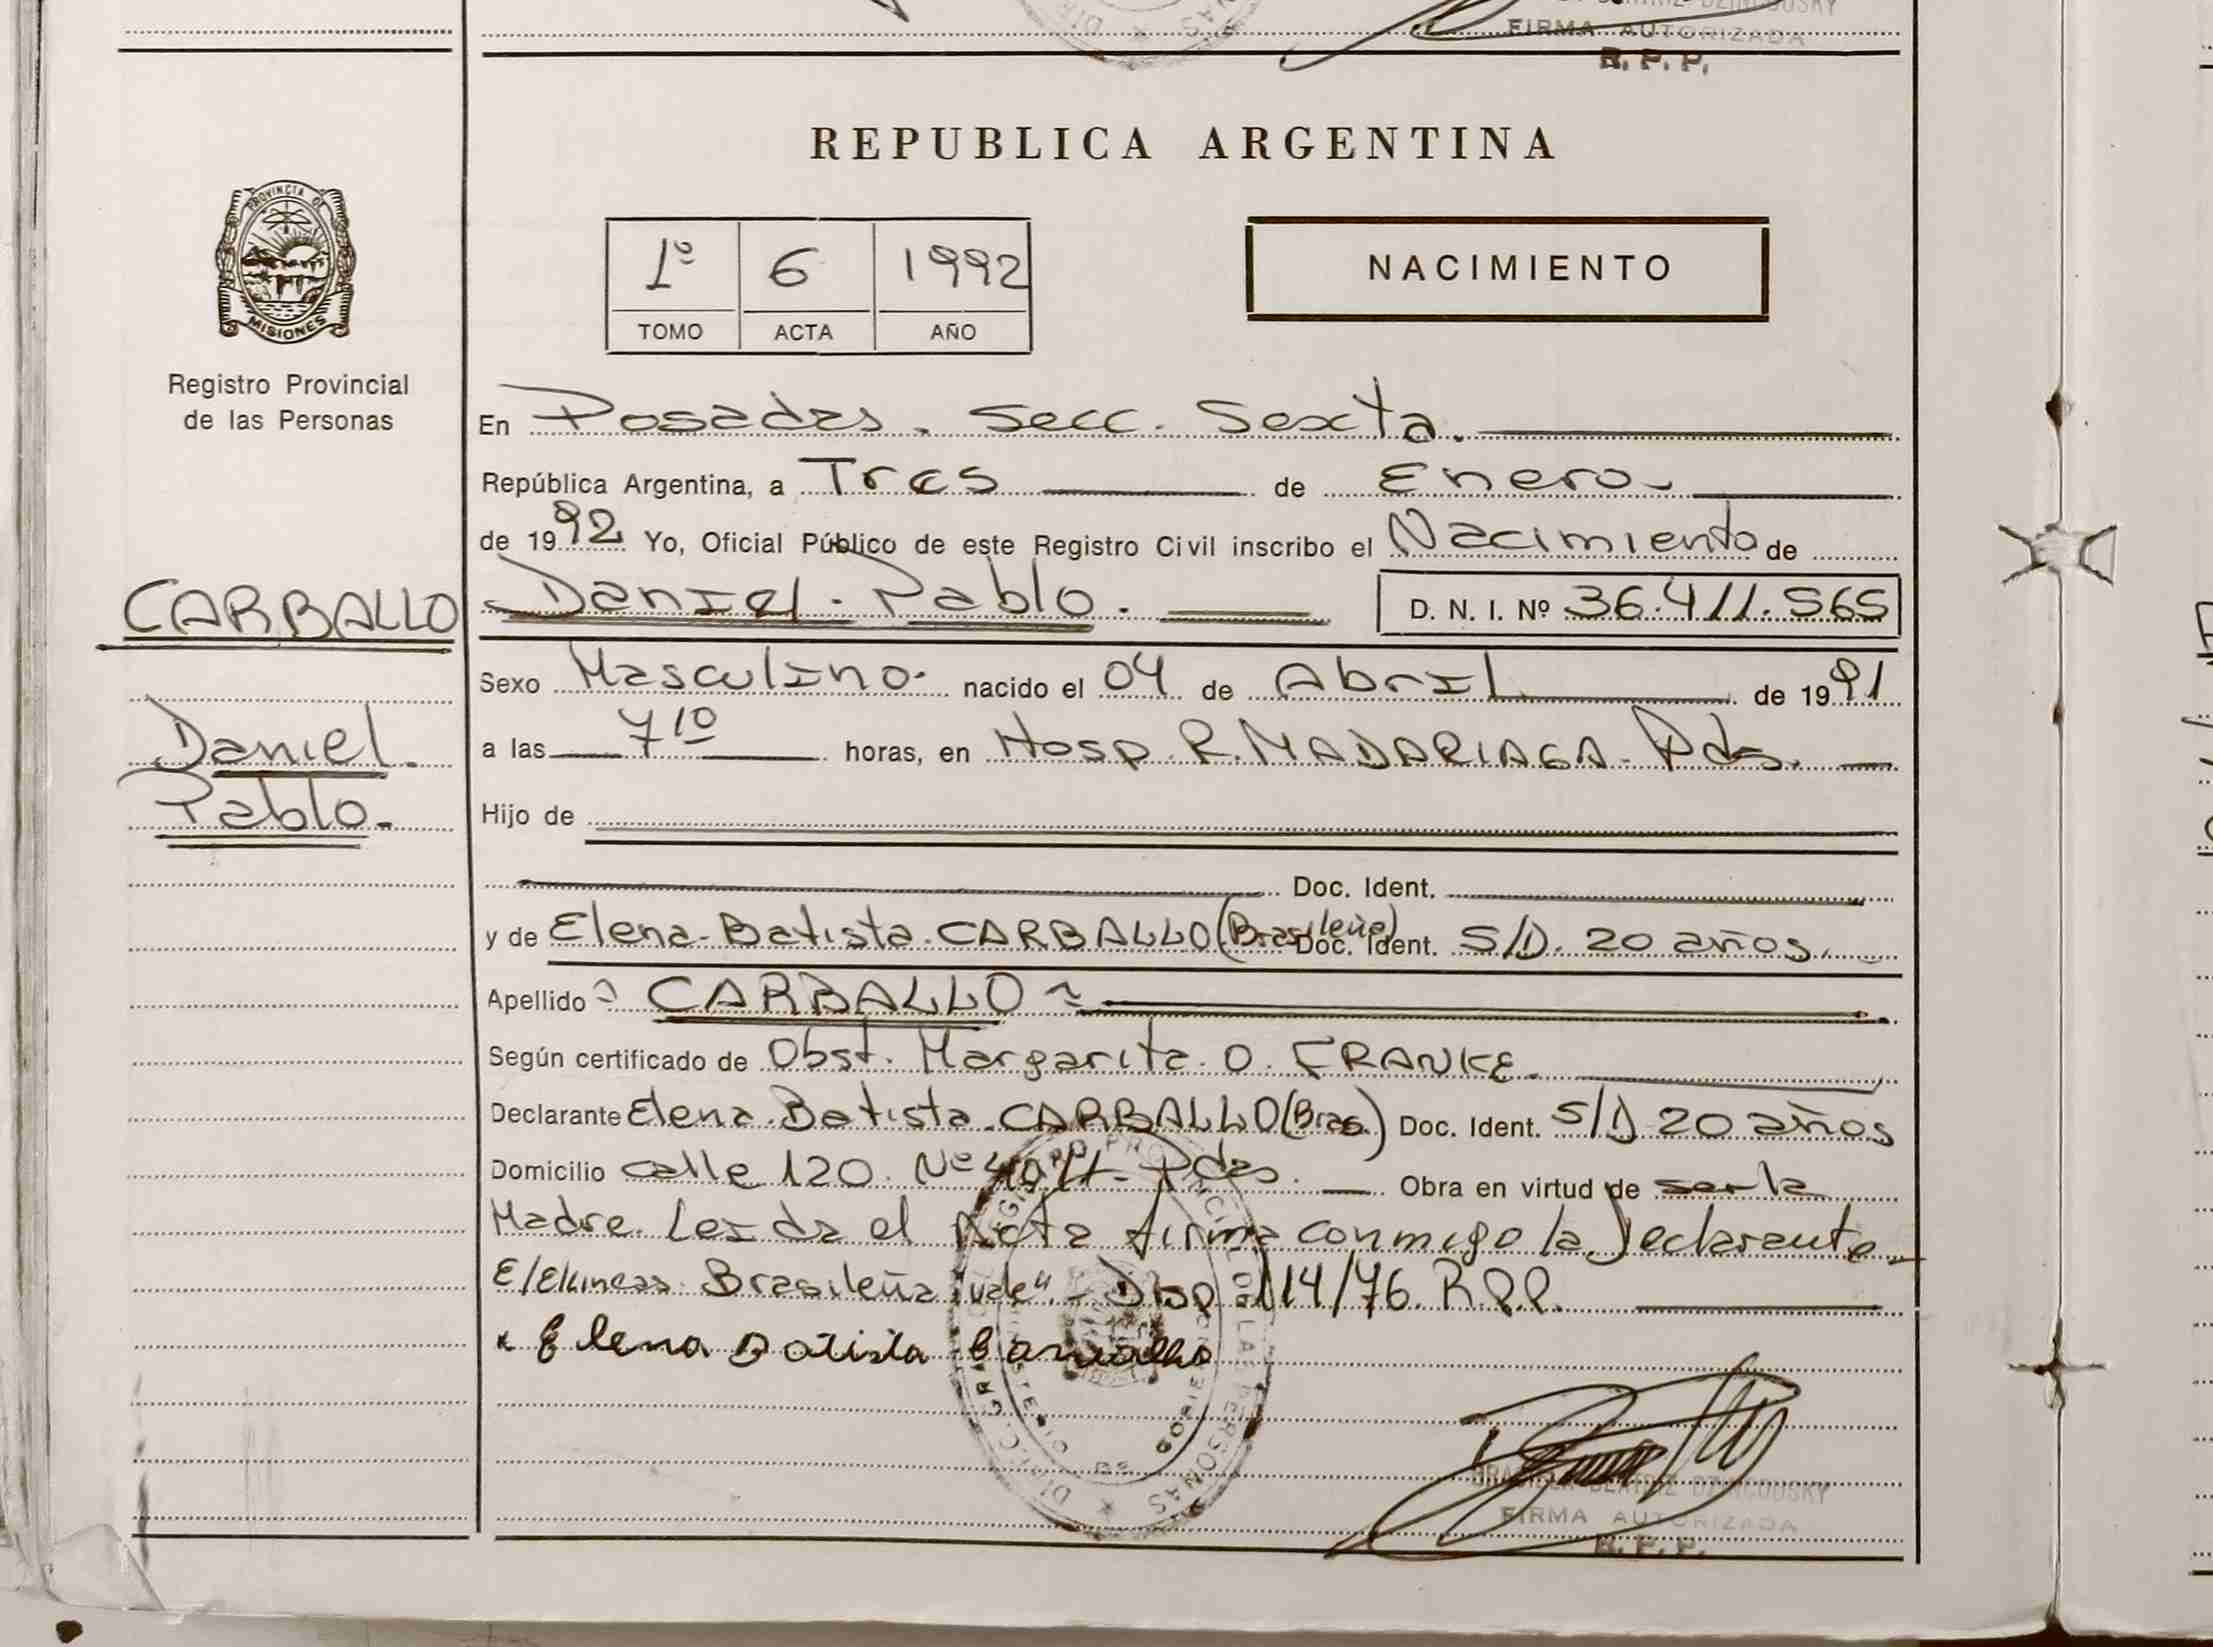 FIRMA AUTORIZADA
R. P. P.
REPUBLICA ARGENTINA
PROVINCIA DE
MISIONES
Registro Provincial
de las Personas
1º 6 1992
TOMO ACTA AÑO
NACIMIENTO
En Posadas. Secc. Sexta.
República Argentina, a Tres de Enero.
de 1992 Yo, Oficial Público de este Registro Civil inscribo el Nacimiento de
CARBALLO
Daniel.
Pablo.
Daniel. Pablo. D. N. I. Nº 36.411.565
Sexo Masculino. nacido el 04 de Abril de 1991
a las 7 10 horas, en Hosp. R. MADARIAGA. Pdas.
Hijo de
Doc. Ident.
y de Elena Batista CARBALLO (Brasileña) Doc. Ident. S/D. 20 años.
Apellido CARBALLO
Según certificado de Obst. Margarita O. FRANKE.
Declarante Elena Batista CARBALLO (Bras) Doc. Ident. S/D 20 años
Domicilio calle 120. Nº Pdas. Obra en virtud de ser la
Madre. Leida el Acta firma conmigo la Declarante
E/lineas: Brasileña "vale". Disp 114/76. R.P.P.
x Elena Batista Carvalho
REGISTRO PROVINCIAL DE LAS PERSONAS
BEATRIZ DZINCOUSKY
FIRMA AUTORIZADA
R. P. P.